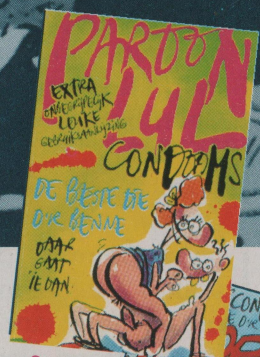 PARDON
LUL
EXTRA
ONBEGRIJPELIJK
LEUKE
GEBRUIKSAANWIJZING
CONDOOMS
DE BESTE DIE
D'R BENNE
DAAR
GAAT
IE DAN
CON
E D'R